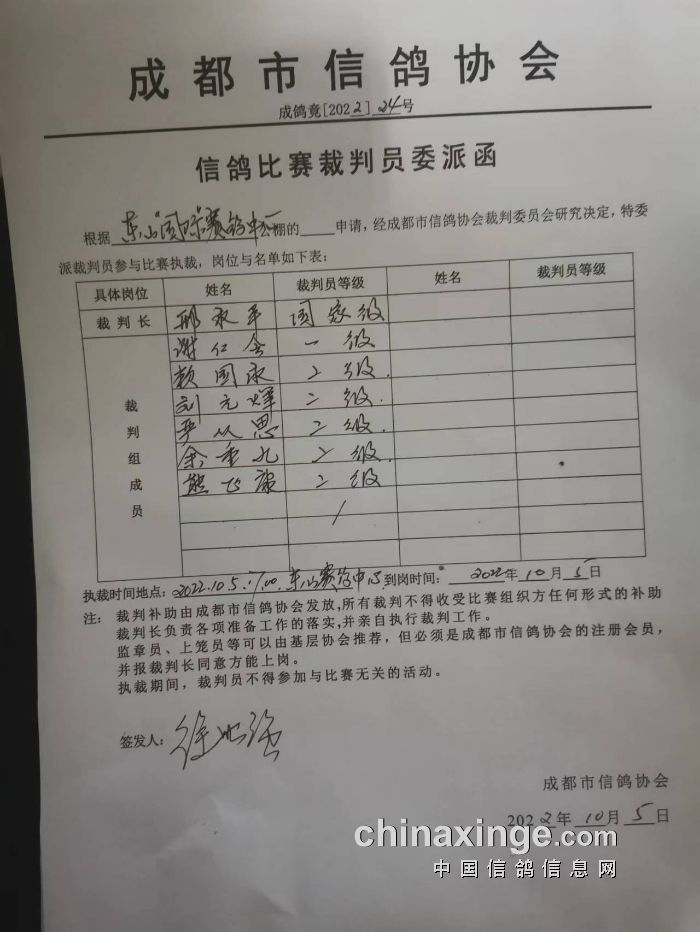 成都市信鸽协会
成鸽竞[2022]24号
信鸽比赛裁判员委派函
根据 东山国际赛鸽中心公棚的 申请，经成都市信鸽协会裁判委员会研究决定，特委
派裁判员参与比赛执裁，岗位与名单如下表：
具体岗位 姓名 裁判员等级 姓名 裁判员等级
裁判长 邢永平 国家级
裁判组成员 谢仁 一级
赖国永 二级
刘元辉 二级
严从思 二级
余重九 二级
熊飞 二级
执裁时间地点：2022.10.5.17.00.东山赛鸽中心 到岗时间：2022年10月5日
注： 裁判补助由成都市信鸽协会发放，所有裁判不得收受比赛组织方任何形式的补助
裁判长负责各项准备工作的落实，并亲自执行裁判工作。
监章员、上笼员等可以由基层协会推荐，但必须是成都市信鸽协会的注册会员，
并报裁判长同意方能上岗。
执裁期间，裁判员不得参加与比赛无关的活动。
签发人：
成都市信鸽协会
2022年10月5日
chinaxinge.com
中国信鸽信息网